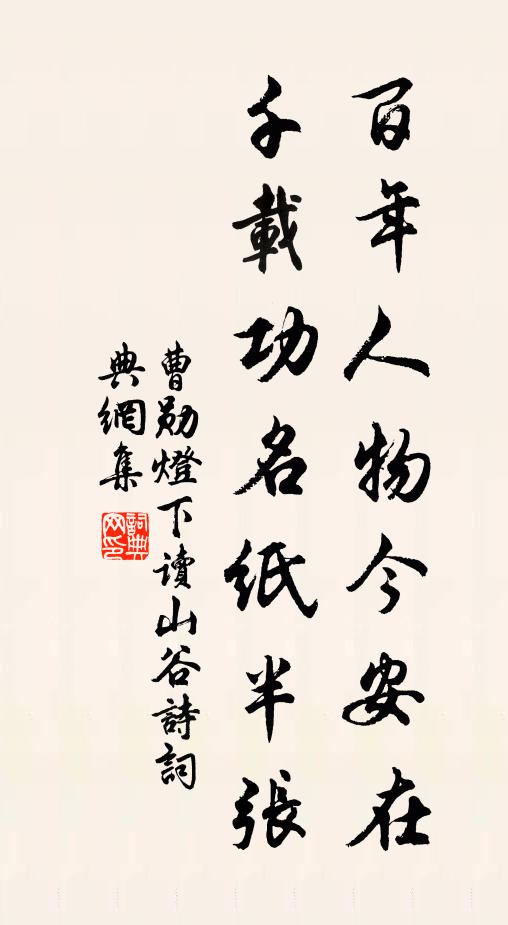 百年人物今安在
千載功名紙半張
曹勛燈下讀山谷詩詞
典網集
詞典網印